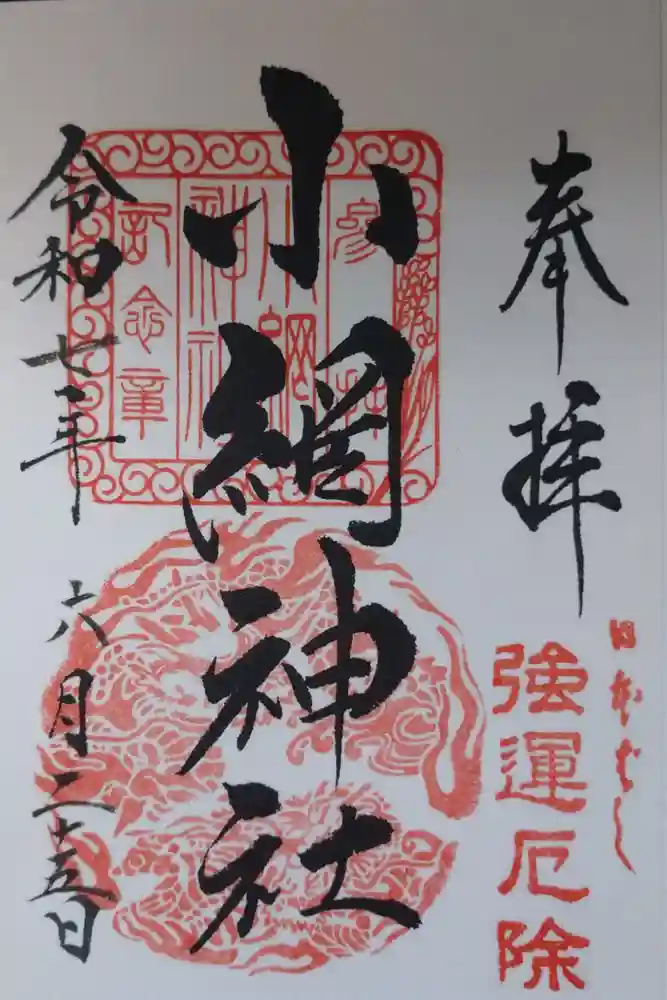 奉拝
日本ばし
強運厄除
小網神社
参拝
小網
神社
記念章
令和七年
六月二十五日